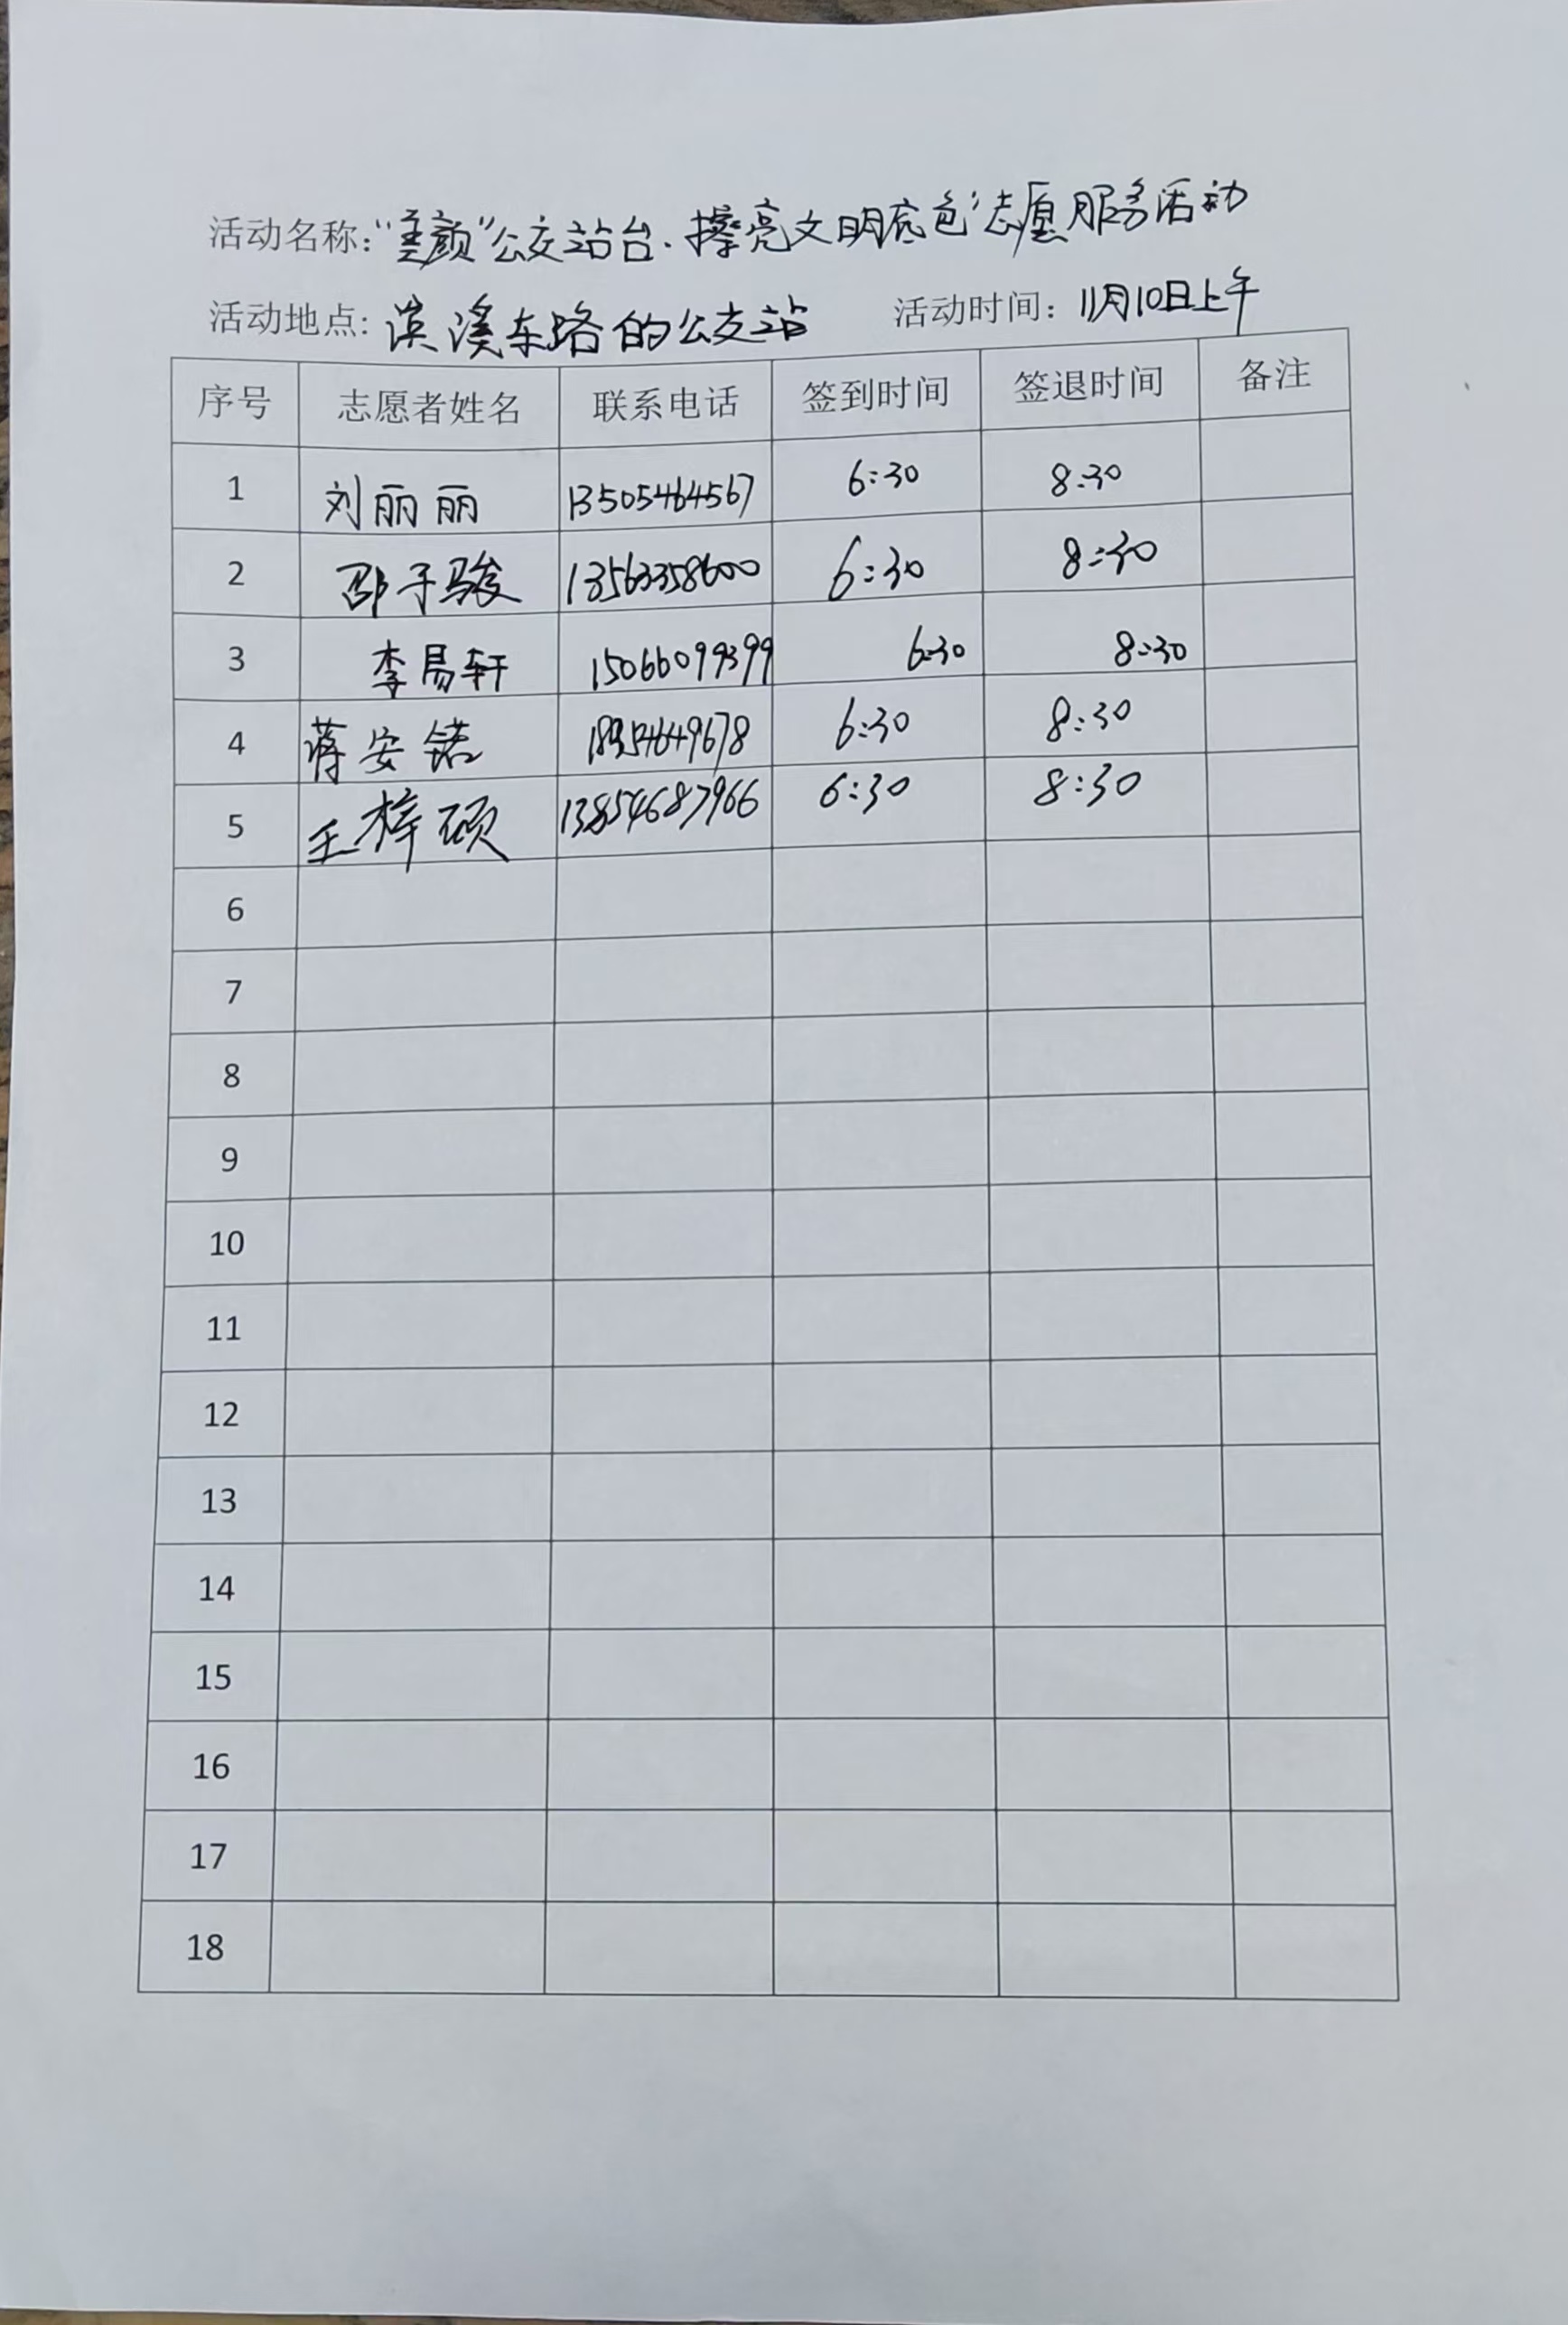 活动名称:“重颜”公交站台.擦亮文明底色’志愿服务活动
活动地点: 淇溪东路的公交站 活动时间: 11月10日上午
序号 志愿者姓名 联系电话 签到时间 签退时间 备注
1 刘丽丽 13505464567 6:30 8:30
2 邵子骏 13563358600 6:30 8:30
3 李易轩 15066099399 6:30 8:30
4 蒋安锘 18954649678 6:30 8:30
5 王梓硕 13854687966 6:30 8:30
6
7
8
9
10
11
12
13
14
15
16
17
18